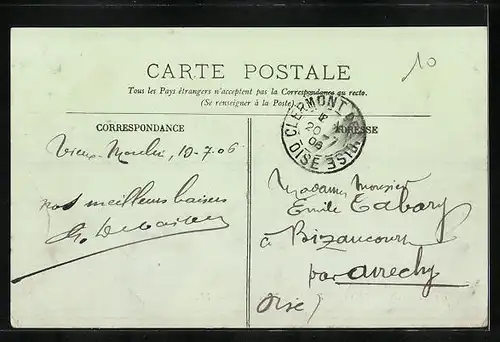 10
CARTE POSTALE
Tous les Pays étrangers n'acceptent pas la Correspondance au recto.
(Se renseigner à la Poste)
CORRESPONDANCE
ADRESSE
CLERMONT DE L'OISE
20
06
OISE
Vieux-Moulin, 10-7-06
nos meilleurs baisers
Madame Monsieur
Emile Tabary
à Bizancourt
par Avrechy
Oise